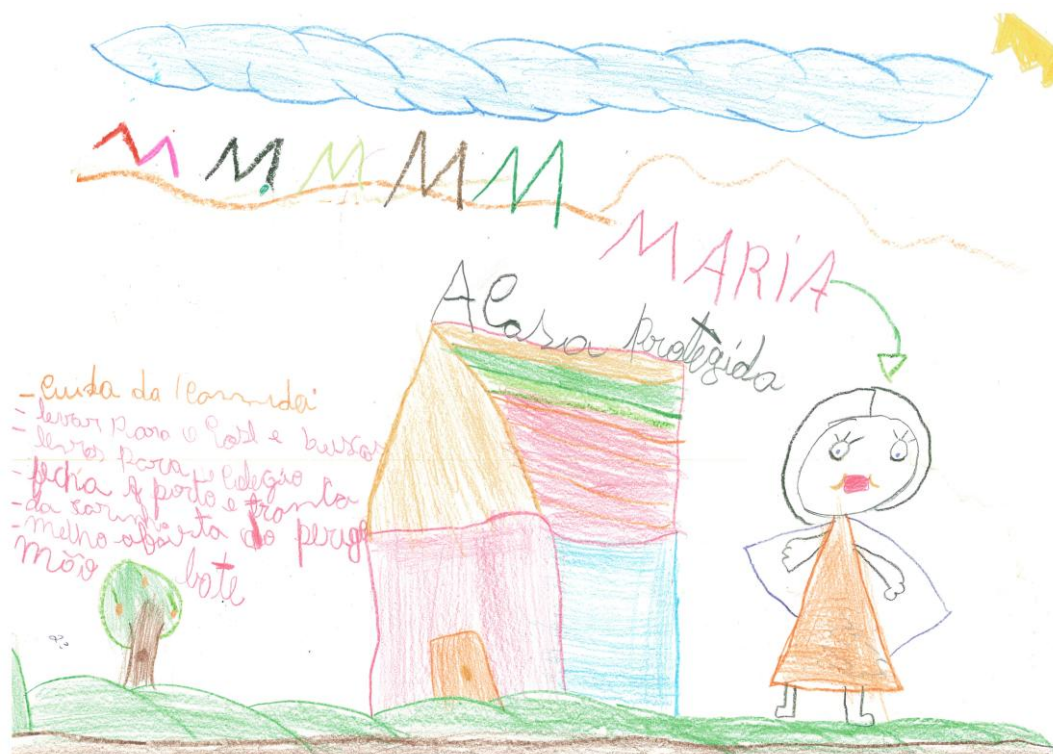 M M M M M
MARIA
A Casa protegida
- Cuida da
- levar para o e buscar
- para o Colegio
- fecha a porta e tranca
- da
- melho afasta do perigo
Mão bate